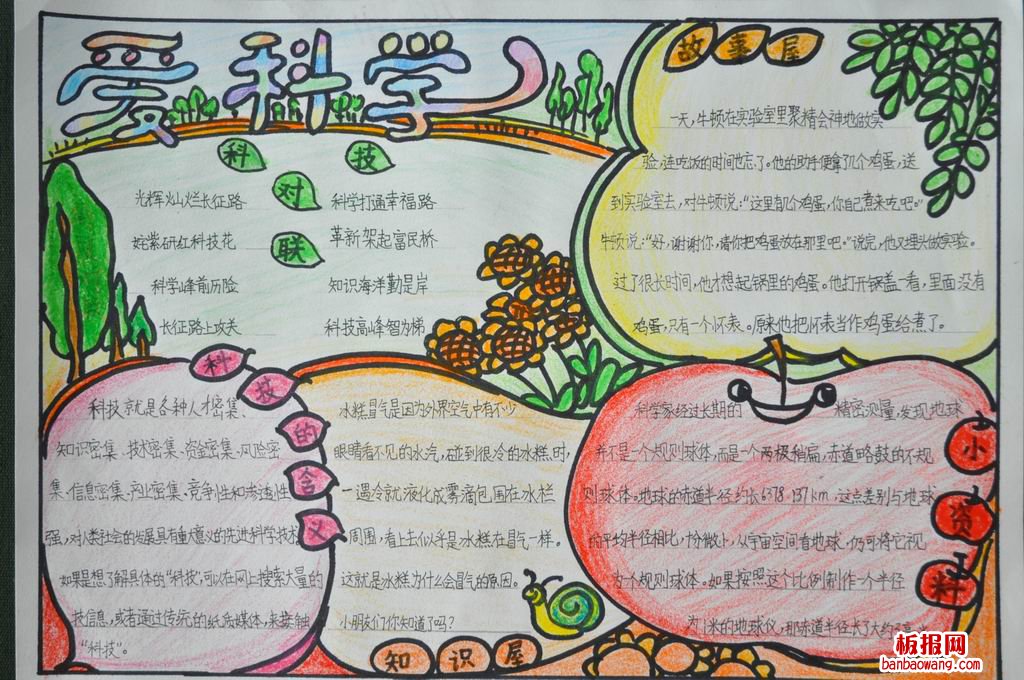 爱科学
科技对联
光辉灿烂长征路
科学打通幸福路
姹紫研红科技花
革新架起富民桥
科学峰前历险
知识海洋勤是岸
长征路上攻关
科技高峰智为梯
故事屋
一天，牛顿在实验室里聚精会神地做实
验，连吃饭的时间也忘了。他的助手便拿了几个鸡蛋，送
到实验室去，对牛顿说：“这里有几个鸡蛋，你自己煮来吃吧。”
牛顿说：“好，谢谢你，请你把鸡蛋放在那里吧。”说完，他又埋头做实验。
过了很长时间，他才想起锅里的鸡蛋。他打开锅盖一看，里面没有
鸡蛋，只有一个怀表。原来他把怀表当作鸡蛋给煮了。
科技的含义
科技就是各种人才密集、
知识密集、技术密集、资金密集、风险密
集、信息密集、产业密集、竞争性和渗透性
强，对人类社会的发展具有重大意义的先进科学技术
如果是想了解具体的“科技”，可以在网上搜索大量的
技信息，或者通过传统的纸质媒体，来接触
“科技”。
水糕冒气是因为外界空气中有不少
眼睛看不见的水气，碰到很冷的水糕时，
一遇冷就液化成雾滴包围在水糕
周围，看上去似乎是水糕在冒气一样。
这就是水糕为什么会冒气的原因。
小朋友们你知道了吗？
知识屋
科学家经过长期的 精密测量，发现地球
并不是一个规则球体，而是一个两极稍扁，赤道略鼓的不规
则球体。地球的赤道半径约长6378.137km，这点差别与地球
的平均半径相比，十分微小，从宇宙空间看地球，仍可将它视
为个规则球体。如果按照这个比例制作一个半径
为1米的地球仪，那赤道半径长了大约
小资料
板报网
banbaowang.com